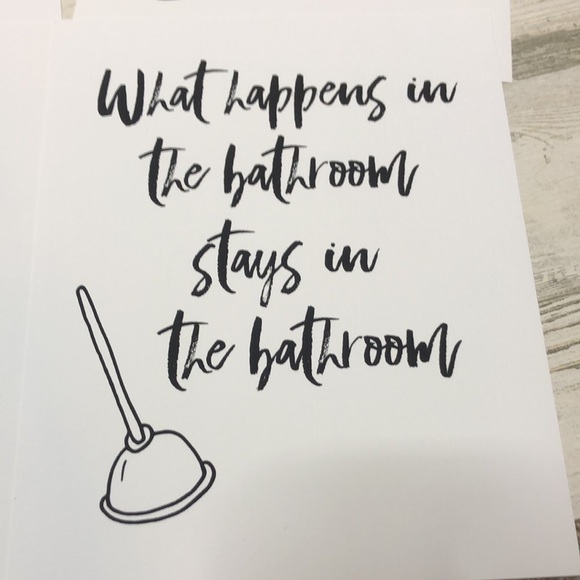 What happens in
the bathroom
stays in
the bathroom